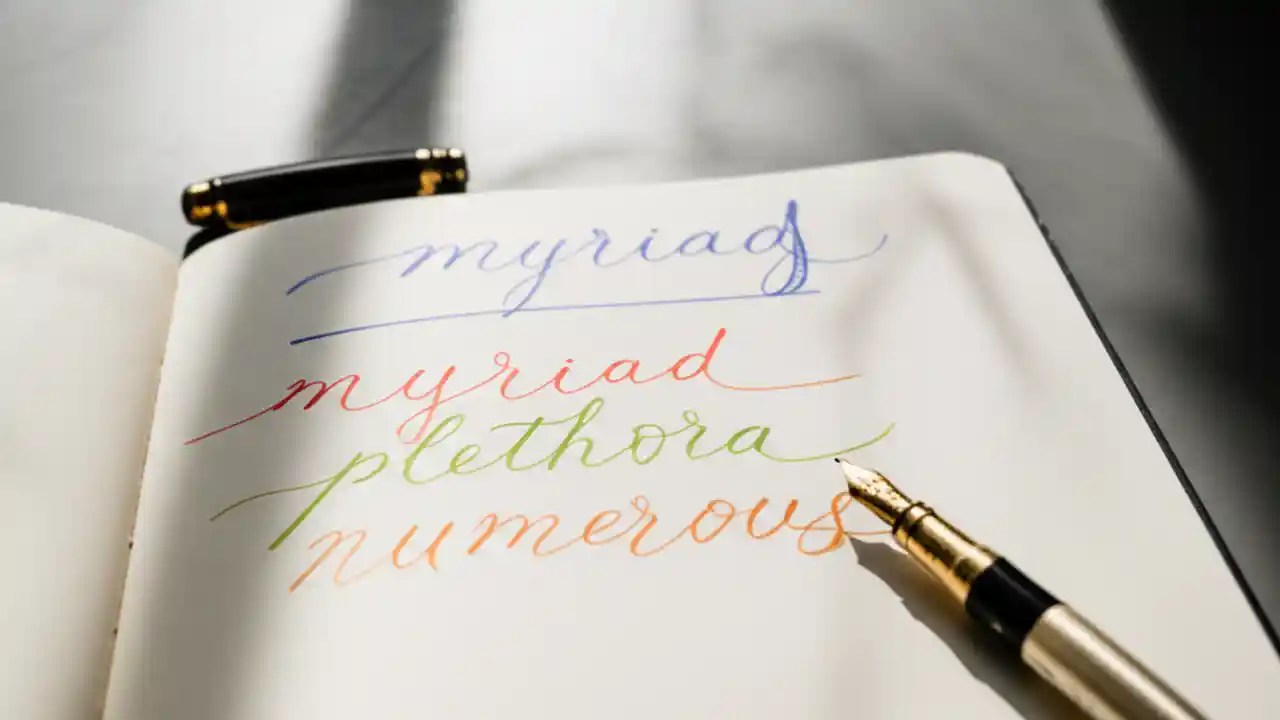 myriad
myriad
plethora
numerous